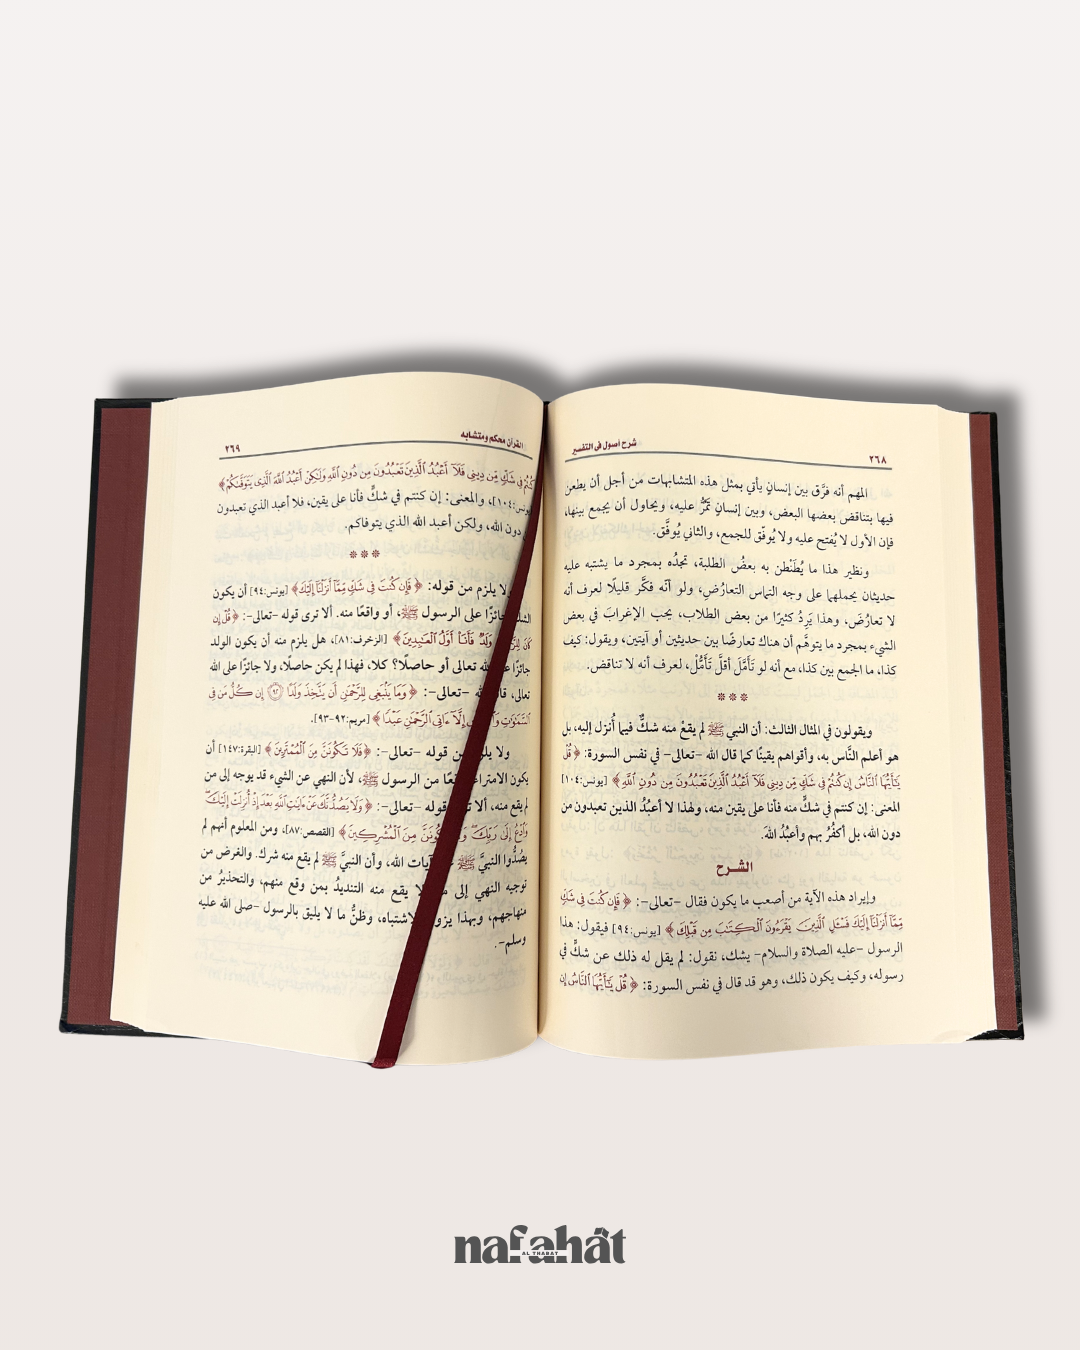 شرح أصول في التفسير
٢٦٨
المهم أنه فرَّق بين إنسانٍ يأتي بمثل هذه المتشابهات من أجل أن يطعن
فيها بتناقض بعضها البعض، وبين إنسانٍ تمرُّ عليه، ويحاول أن يجمع بينها،
فإن الأول لا يُفتح عليه ولا يُوفّق للجمع، والثاني يُوفَّق.
ونظير هذا ما يُطَنْطِن به بعضُ الطلبة، تجدُه بمجرد ما يشتبه عليه
حديثان يحملهما على وجه التماس التعارُضِ، ولو أنّه فكَّر قليلًا لعرف أنه
لا تعارُضَ، وهذا يَرِدُ كثيرًا من بعض الطلاب، يحب الإغرابَ في بعض
الشيء بمجرد ما يتوهَّم أن هناك تعارضًا بين حديثين أو آيتين، ويقول: كيف
كذا، ما الجمع بين كذا، مع أنه لو تَأمَّلَ أقلَّ تَأَمُّلٍ، لعرف أنه لا تناقض.
***
ويقولون في المثال الثالث: أن النبي ﷺ لم يقعْ منه شكٌّ فيما أُنزل إليه، بل
هو أعلم النَّاس به، وأقواهم يقينًا كما قال الله -تعالى- في نفس السورة: ﴿ قُلْ
يَـٰٓأَيُّهَا ٱلنَّاسُ إِن كُنتُمْ فِى شَكٍّ مِّن دِينِى فَلَآ أَعْبُدُ ٱلَّذِينَ تَعْبُدُونَ مِن دُونِ ٱللَّهِ ﴾ [يونس:١٠٤]
المعنى: إن كنتم في شكٍّ منه فأنا على يقين منه، ولهذا لا أعبُدُ الذين تعبدون من
دون الله، بل أكفُرُ بهم وأعبُدُ اللهَ.
الشرح
وإيراد هذه الآية من أصعب ما يكون فقال -تعالى-: ﴿ فَإِن كُنتَ فِى شَكٍّ
مِّمَّآ أَنزَلْنَآ إِلَيْكَ فَسْـَٔلِ ٱلَّذِينَ يَقْرَءُونَ ٱلْكِتَـٰبَ مِن قَبْلِكَ ﴾ [يونس:٩٤] فيقول: هذا
الرسول -عليه الصلاة والسلام- يشك، نقول: لم يقل له ذلك عن شكٍّ في
رسوله، وكيف يكون ذلك، وهو قد قال في نفس السورة: ﴿ قُلْ يَـٰٓأَيُّهَا ٱلنَّاسُ إِن
القرآن محكم ومتشابه
٢٦٩
كُنتُمْ فِى شَكٍّ مِّن دِينِى فَلَآ أَعْبُدُ ٱلَّذِينَ تَعْبُدُونَ مِن دُونِ ٱللَّهِ وَلَـٰكِنْ أَعْبُدُ ٱللَّهَ ٱلَّذِى يَتَوَفَّىٰكُمْ ﴾
[يونس:١٠٤]، والمعنى: إن كنتم في شكٍّ فأنا على يقين، فلا أعبد الذي تعبدون
دون الله، ولكن أعبد الله الذي يتوفاكم.
***
ولا يلزم من قوله: ﴿ فَإِن كُنتَ فِى شَكٍّ مِّمَّآ أَنزَلْنَآ إِلَيْكَ ﴾ [يونس:٩٤] أن يكون
الشك جائزًا على الرسول ﷺ، أو واقعًا منه. ألا ترى قوله -تعالى-: ﴿ قُلْ إِن
كَانَ وَلَدٌ فَأَنَا۠ أَوَّلُ ٱلْعَـٰبِدِينَ ﴾ [الزخرف:٨١]، هل يلزم منه أن يكون الولد
جائزًا الله تعالى أو حاصلًا؟ كلا، فهذا لم يكن حاصلًا، ولا جائزًا على الله
تعالى، قال الله -تعالى-: ﴿ وَمَا يَنۢبَغِى لِلرَّحْمَـٰنِ أَن يَتَّخِذَ وَلَدًا ۝٩٢ إِن كُلُّ مَن فِى
ٱلسَّمَـٰوَٰتِ إِلَّآ ءَاتِى ٱلرَّحْمَـٰنِ عَبْدًا ﴾ [مريم:٩٢-٩٣].
ولا يلزم من قوله -تعالى-: ﴿فَلَا تَكُونَنَّ مِنَ ٱلْمُمْتَرِينَ ﴾ [البقرة:١٤٧] أن
يكون الامتراء واقعًا من الرسول ﷺ، لأن النهي عن الشيء قد يوجه إلى من
لم يقع منه، ألا ترى قوله -تعالى-: ﴿ وَلَا يَصُدُّنَّكَ عَنْ ءَايَـٰتِ ٱللَّهِ بَعْدَ إِذْ أُنزِلَتْ إِلَيْكَ
وَٱدْعُ إِلَىٰ رَبِّكَ تَكُونَنَّ مِنَ ٱلْمُشْرِكِينَ ﴾ [القصص:٨٧]، ومن المعلوم أنهم لم
يصُدُّوا النبيَّ ﷺ عن آيات الله، وأن النبيَّ ﷺ لم يقع منه شرك. والغرض من
توجيه النهي إلى من لا يقع منه التنديدُ بمن وقع منهم، والتحذيرُ من
منهاجهم، وبهذا يزول الاشتباه، وظنُّ ما لا يليق بالرسول -صلى الله عليه
وسلم-.
nafahât
AL THABAT